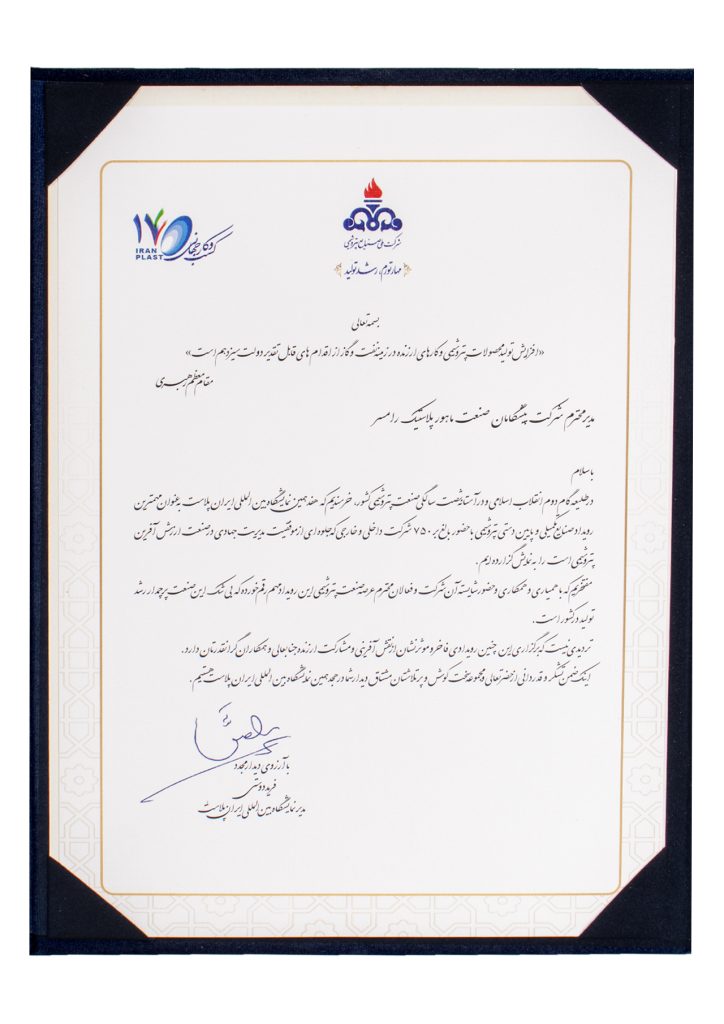 ۱۷
IRAN
PLAST
کسب و کار جهانی
شرکت ملی صنایع پتروشیمی
مهار تورم، رشد تولید
بسمه تعالی
«افزایش تولید محصولات پتروشیمی و کارهای ارزنده در زمینه نفت و گاز از اقدام های قابل تقدیر دولت سیزدهم است»
مقام معظم رهبری
مدیر محترم شرکت پیشگامان صنعت ماهور پلاستیک رامسر
با سلام
در طلیعه گام دوم انقلاب اسلامی و در آستانه شصت سالگی صنعت پتروشیمی کشور، خرسندیم که هفدهمین نمایشگاه بین المللی ایران پلاست به عنوان مهمترین
رویداد صنایع تکمیلی و پایین دستی پتروشیمی با حضور بالغ بر ۷۵۰ شرکت داخلی و خارجی که جلوه ای از موفقیت مدیریت جهادی در صنعت ارزش آفرین
پتروشیمی است را به نمایش گزارده ایم.
مفتخریم که با همیاری و همکاری و حضور شایسته آن شرکت و فعالان محترم عرصه صنعت پتروشیمی این رویداد مهم رقم خورده که بی شک این صنعت پرچمدار رشد
تولید در کشور است.
تردیدی نیست که برگزاری این چنین رویدادی فاخر و موثر نشان از نقش آفرینی و مشارکت ارزنده جنابعالی و همکاران گرانقدرتان دارد.
اینک ضمن تشکر و قدردانی از حضرتعالی و مجموعه سخت کوش و پرتلاشتان مشتاق دیدار شما در هجدهمین نمایشگاه بین المللی ایران پلاست هستیم.
با آرزوی دیدار مجدد
فرید دوستی
مدیر نمایشگاه بین المللی ایران پلاست